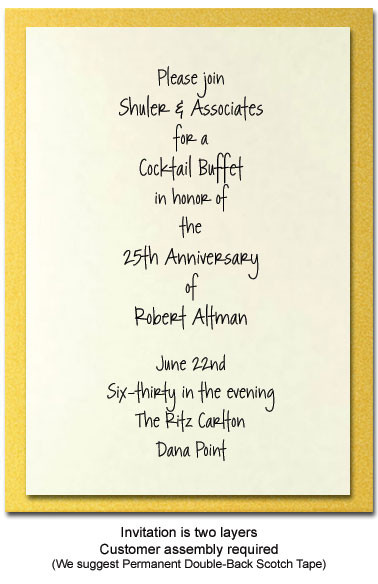 Please join
Shuler & Associates
for a
Cocktail Buffet
in honor of
the
25th Anniversary
of
Robert Altman
June 22nd
Six-thirty in the evening
The Ritz Carlton
Dana Point
Invitation is two layers
Customer assembly required
(We suggest Permanent Double-Back Scotch Tape)